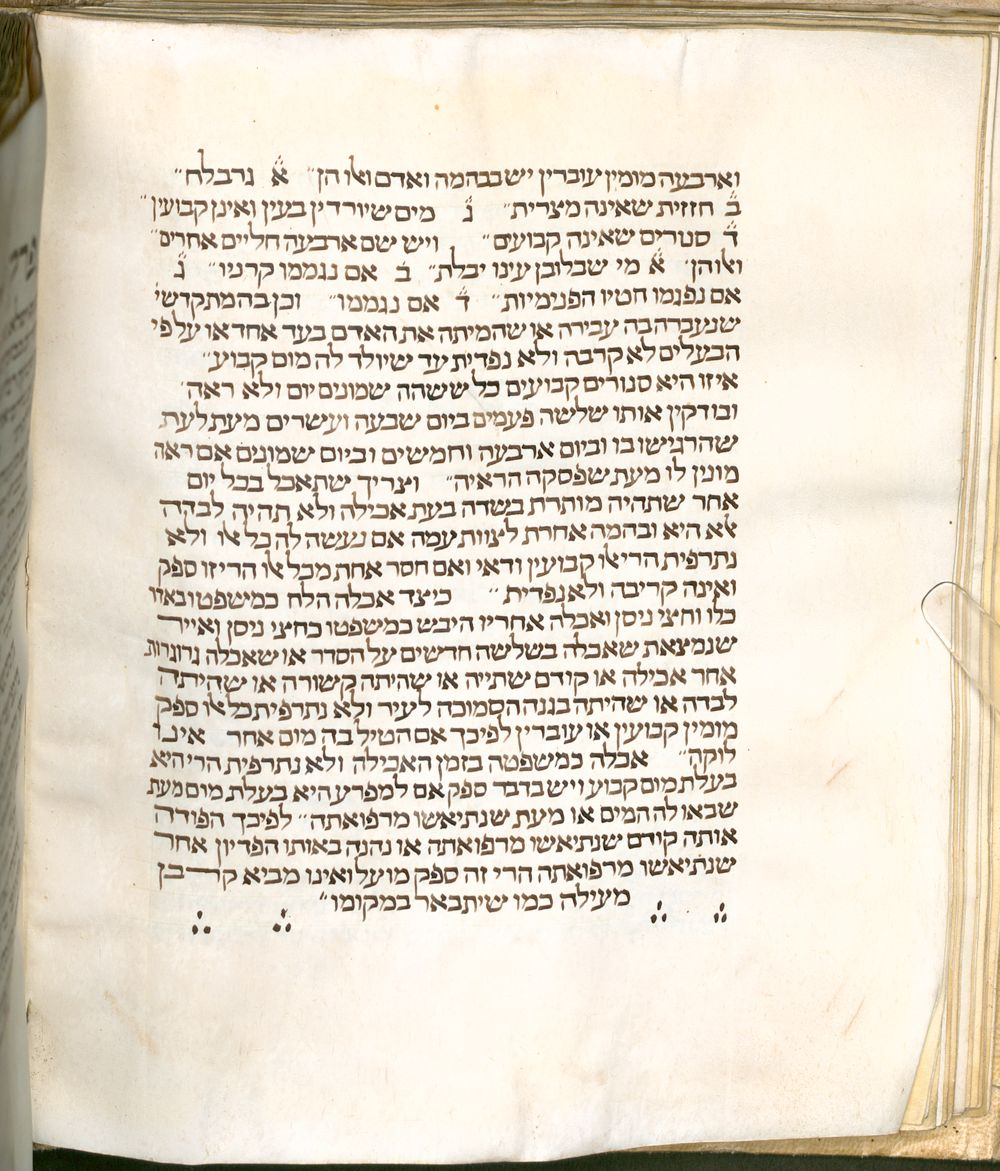 וארבעה מומין עוברין יש בבהמה ואדם ואלו הן״ א גרב לח״
ב חזזית שאינה מצרית״ ג מים שיורדין בעין ואינן קבועין״
ד סנורים שאינה קבועים״ ויש שם ארבעה חליים אחרים״
ואלו הן׳ א מי שבלובן עינו יבלת״ ב אם נגממו קרניו״ ג
אם נפגמו חטיו הפנימיות״ ד אם נגממו״ וכן בהמת קדשי׳
שנעברה בה עבירה או שהמיתה את האדם בעד אחד או על פי
הבעלים לא קרבה ולא נפדית עד שיולד לה מום קבוע״
איזו היא סנורים קבועים כל ששהה שמונים יום ולא ראה׳
ובודקין אותו שלשה פעמים ביום שבעה ועשרים מעת לעת
שהרגישו בו וביום ארבעה וחמשים וביום שמונים אם ראה
מונין לו מעת שפסקה הראיה״ וצריך שתאכל בכל יום
אחר שתהיה מותרת בשדה בעת אכילה ולא תהיה לבדה
אלא היא ובהמה אחרת לצוות עמה אם נעשה לה כל אלו ולא
נתרפית הרי אלו קבועין ודאי ואם חסר אחת מכל אלו הרי זו ספק
ואינה קריבה ולא נפדית״ כיצד אכלה הלח כמשפטו באדר
כלו וחצי ניסן ואכלה אחריו היבש כמשפטו כחצי ניסן ואייר
שנמצאת שאכלה בשלשה חדשים על הסדר או שאכלה גרוגרות
אחר אכילה או קודם שתיה או שהיתה קשורה או שהיתה
לבדה או שהיתה בגנה הסמוכה לעיר ולא נתרפית כל אלו ספק
מומין קבועין או עוברין לפיכך אם הטיל בה מום אחר אינו
לוקה״ אכלה כמשפטה בזמן האכילה ולא נתרפית הרי היא
בעלת מום קבוע ויש בדבר ספק אם למפרע היא בעלת מום מעת
שבאו לה המים או מעת שנתיאשו מרפואתה״ לפיכך הפודה
אותה קודם שנתיאשו מרפואתה או נהנה באותו הפדיון אחר
שנתיאשו מרפואתה הרי זה ספק מועל ואינו מביא קרבן
מעילה כמו שיתבאר במקומו״